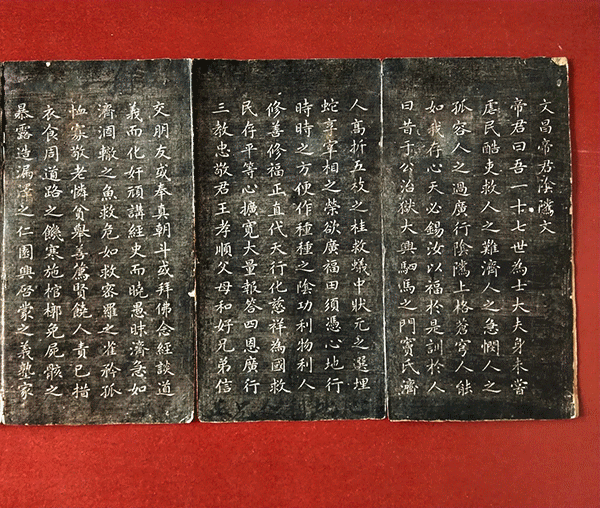 文昌帝君陰騭文
帝君曰吾一十七世為士大夫身未嘗
虐民酷吏救人之難濟人之急憫人之
孤容人之過廣行陰騭上格蒼穹人能
如我存心天必錫汝以福於是訓於人
曰昔于公治獄大興駟馬之門竇氏濟
人高折五枝之桂救蟻中狀元之選埋
蛇享宰相之榮欲廣福田須憑心地行
時時之方便作種種之陰功利物利人
修善修福正直代天行化慈祥為國救
民存平等心擴寬大量報答四恩廣行
三教忠敬君王孝順父母和好兄弟信
交朋友或奉真朝斗或拜佛念經談道
義而化奸頑講經史而曉愚昧濟急如
濟涸轍之魚救危如救密羅之雀矜孤
恤寡敬老憐貧舉善薦賢饒人責己措
衣食周道路之饑寒施棺槨免屍骸之
暴露造漏澤之仁園興啓蒙之義塾家